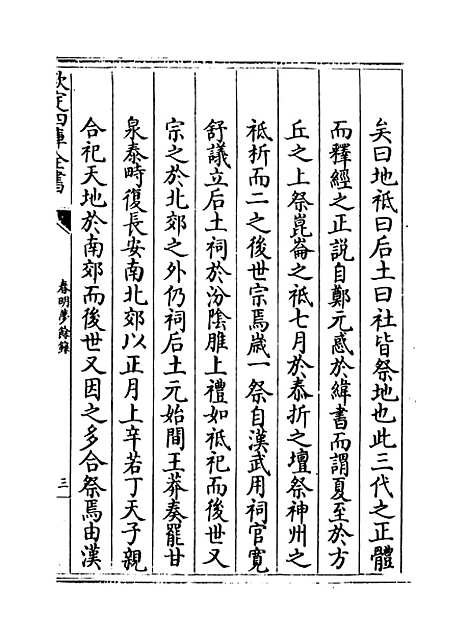 矣曰地祗曰后土曰社皆祭地也此三代之正體
而釋經之正説自鄭元惑於緯書而謂夏至於方
丘之上祭崑崙之祗七月於泰折之壇祭神州之
祗折而二之後世宗焉嵗一祭自漢武用祠官寛
舒議立后土祠於汾陰脽上禮如祗祀而後世又
宗之於北郊之外仍祠后土元始間王莽奏罷甘
泉泰畤復長安南北郊以正月上辛若丁天子親
合祀天地於南郊而後世又因之多合祭焉由漢
欽定四庫全書
春明夢餘録
三